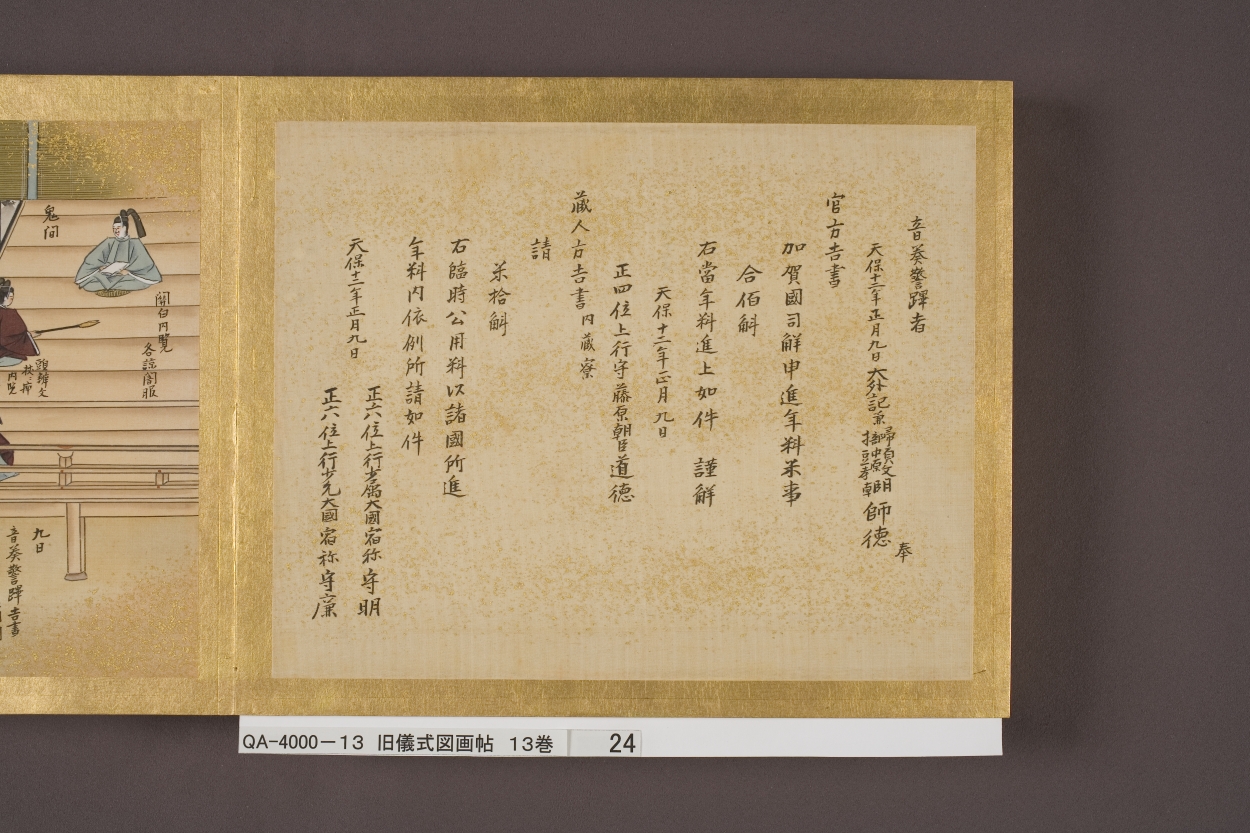 音奏警蹕者
天保十二年正月九日 大外記兼掃部頭 中原朝臣師徳
奉
官方吉書
加賀國司解申進年料米事
合佰斛
右當年料進上如件 謹解
天保十二年正月九日
正四位上行守藤原朝臣道德
藏人方吉書内藏寮
請
米拾斛
右臨時公用料以諸國所進
年料内依例所請如件
天保十二年正月九日
正六位上行少属大國宿祢守明
正六位上行少允大國宿祢守廉
鬼間
關白内覧
各諒闇服
頭辨文
内覧
九日
音奏警蹕吉書
QA-4000-13 旧儀式図画帖 13巻 24